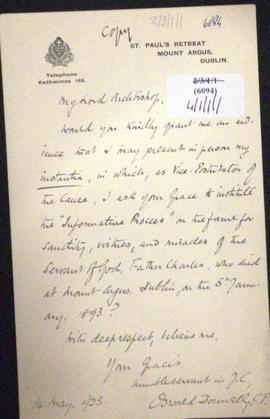 Copy
2/3/1/1
6094
ST. PAUL'S RETREAT
MOUNT ARGUS,
DUBLIN.
Telephone
Rathmines 165.
2/3/1/1
(6094)
4/1/1/1
My Lord Archbishop,
Would you kindly grant me an aud-
ience that I may present in person my
instantia, in which, as Vice-Postulator of
the Cause, I ask your Grace to institute
the "Informative Process" on the fame for
sanctity, virtues, and miracles of the
Servant of God, Father Charles, who died
at Mount Argus, Dublin, on the 5th Janu-
ary, 1893?
With deep respect, believe me,
Your Grace's
humble servant in J.C.,
Oswald Donnelly, C.P.
May, 1923.